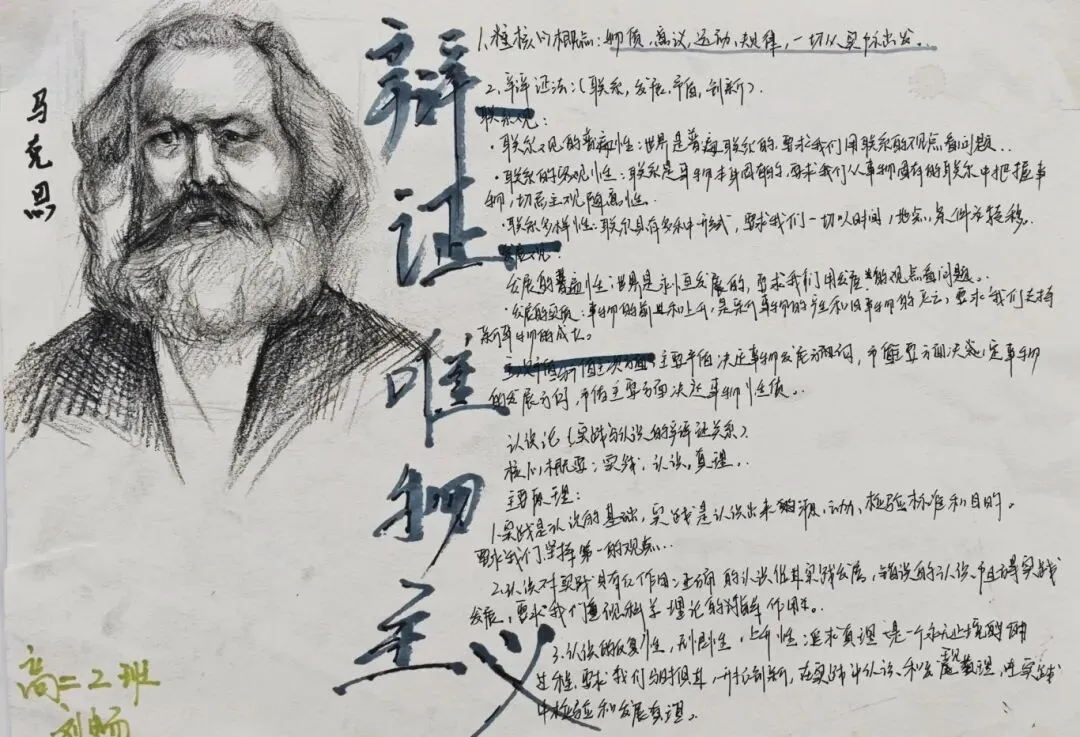 马克思
辩证唯物主义
1.核心概念:物质,意识,运动,规律,一切从实际出发...
2.辩证法:(联系,发展,矛盾,创新).
联系观:
·联系的普遍性:世界是普遍联系的,要求我们用联系的观点看问题..
·联系的客观性:联系是事物本身固有的,要求我们从事物固有的联系中把握事
物,切忌主观随意性.
·联系多样性:联系具有多种形式,要求我们一切以时间,地点,条件为转移.
发展观:
发展的普遍性:世界是永恒发展的,要求我们用发展的观点看问题..
·发展的实质:事物的前进和上升,是新事物的产生和旧事物的灭亡,要求我们支持
新事物的成长。
主要矛盾决定事物发展方向,
的发展方向,矛盾主要方面决定事物性质..
认识论(实践与认识的辩证关系).
核心概要:实践,认识,真理..
主要原理:
1.实践是认识的基础,实践是认识出来的源,动力,检验标准和目的。
要求我们坚持第一的观点...
2.认识对实践具有反作用:正确的认识促其实践发展,错误的认识阻碍实践
发展,要求我们重视科学理论的指导作用。
3.认识的反复性,无限性,上升性:追求真理是一个永无止境的
过程,要求我们与时俱进,开拓创新,在实践中认识和发现真理,在实践
中检验和发展真理。
高二2班
刘畅